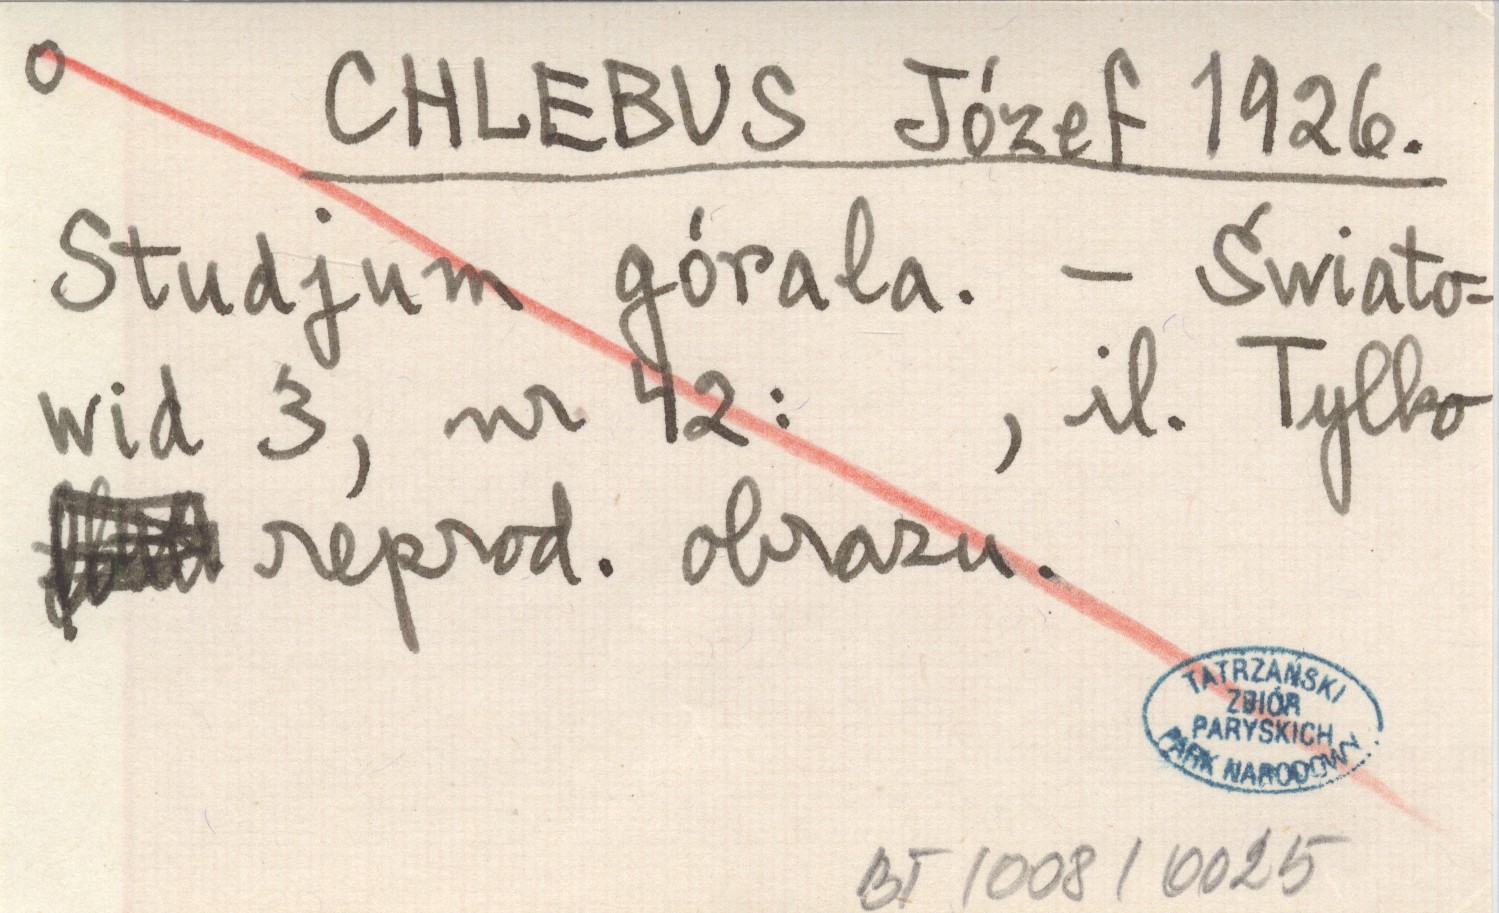 o CHLEBUS Józef 1926.
Studjum górala. – Świato=
wid 3, nr 42: , il. Tylko
reprod. obrazu.
TATRZAŃSKI
ZBIÓR
PARYSKICH
PARK NARODOWY
BT / 008 / 0025